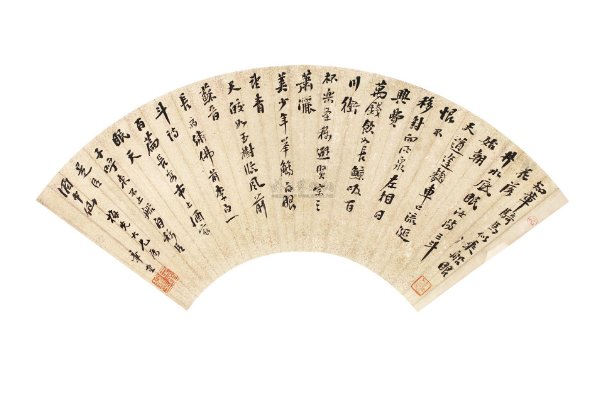 知章
騎馬似乘船眼
花落
井水底眠汝陽三斗
始朝
天道逢麴車口流涎
恨不
移封向酒泉左相日
興費
萬錢飲如長鯨吸百
川銜
杯樂聖稱避賢宗之
瀟灑
美少年舉觴白眼
望青
天皎如玉樹臨風前
蘇晉
長齋繡佛前李白一
斗詩
百篇長安市上酒家
眠天
子呼來不上船自稱臣
是酒中仙
大兄屬